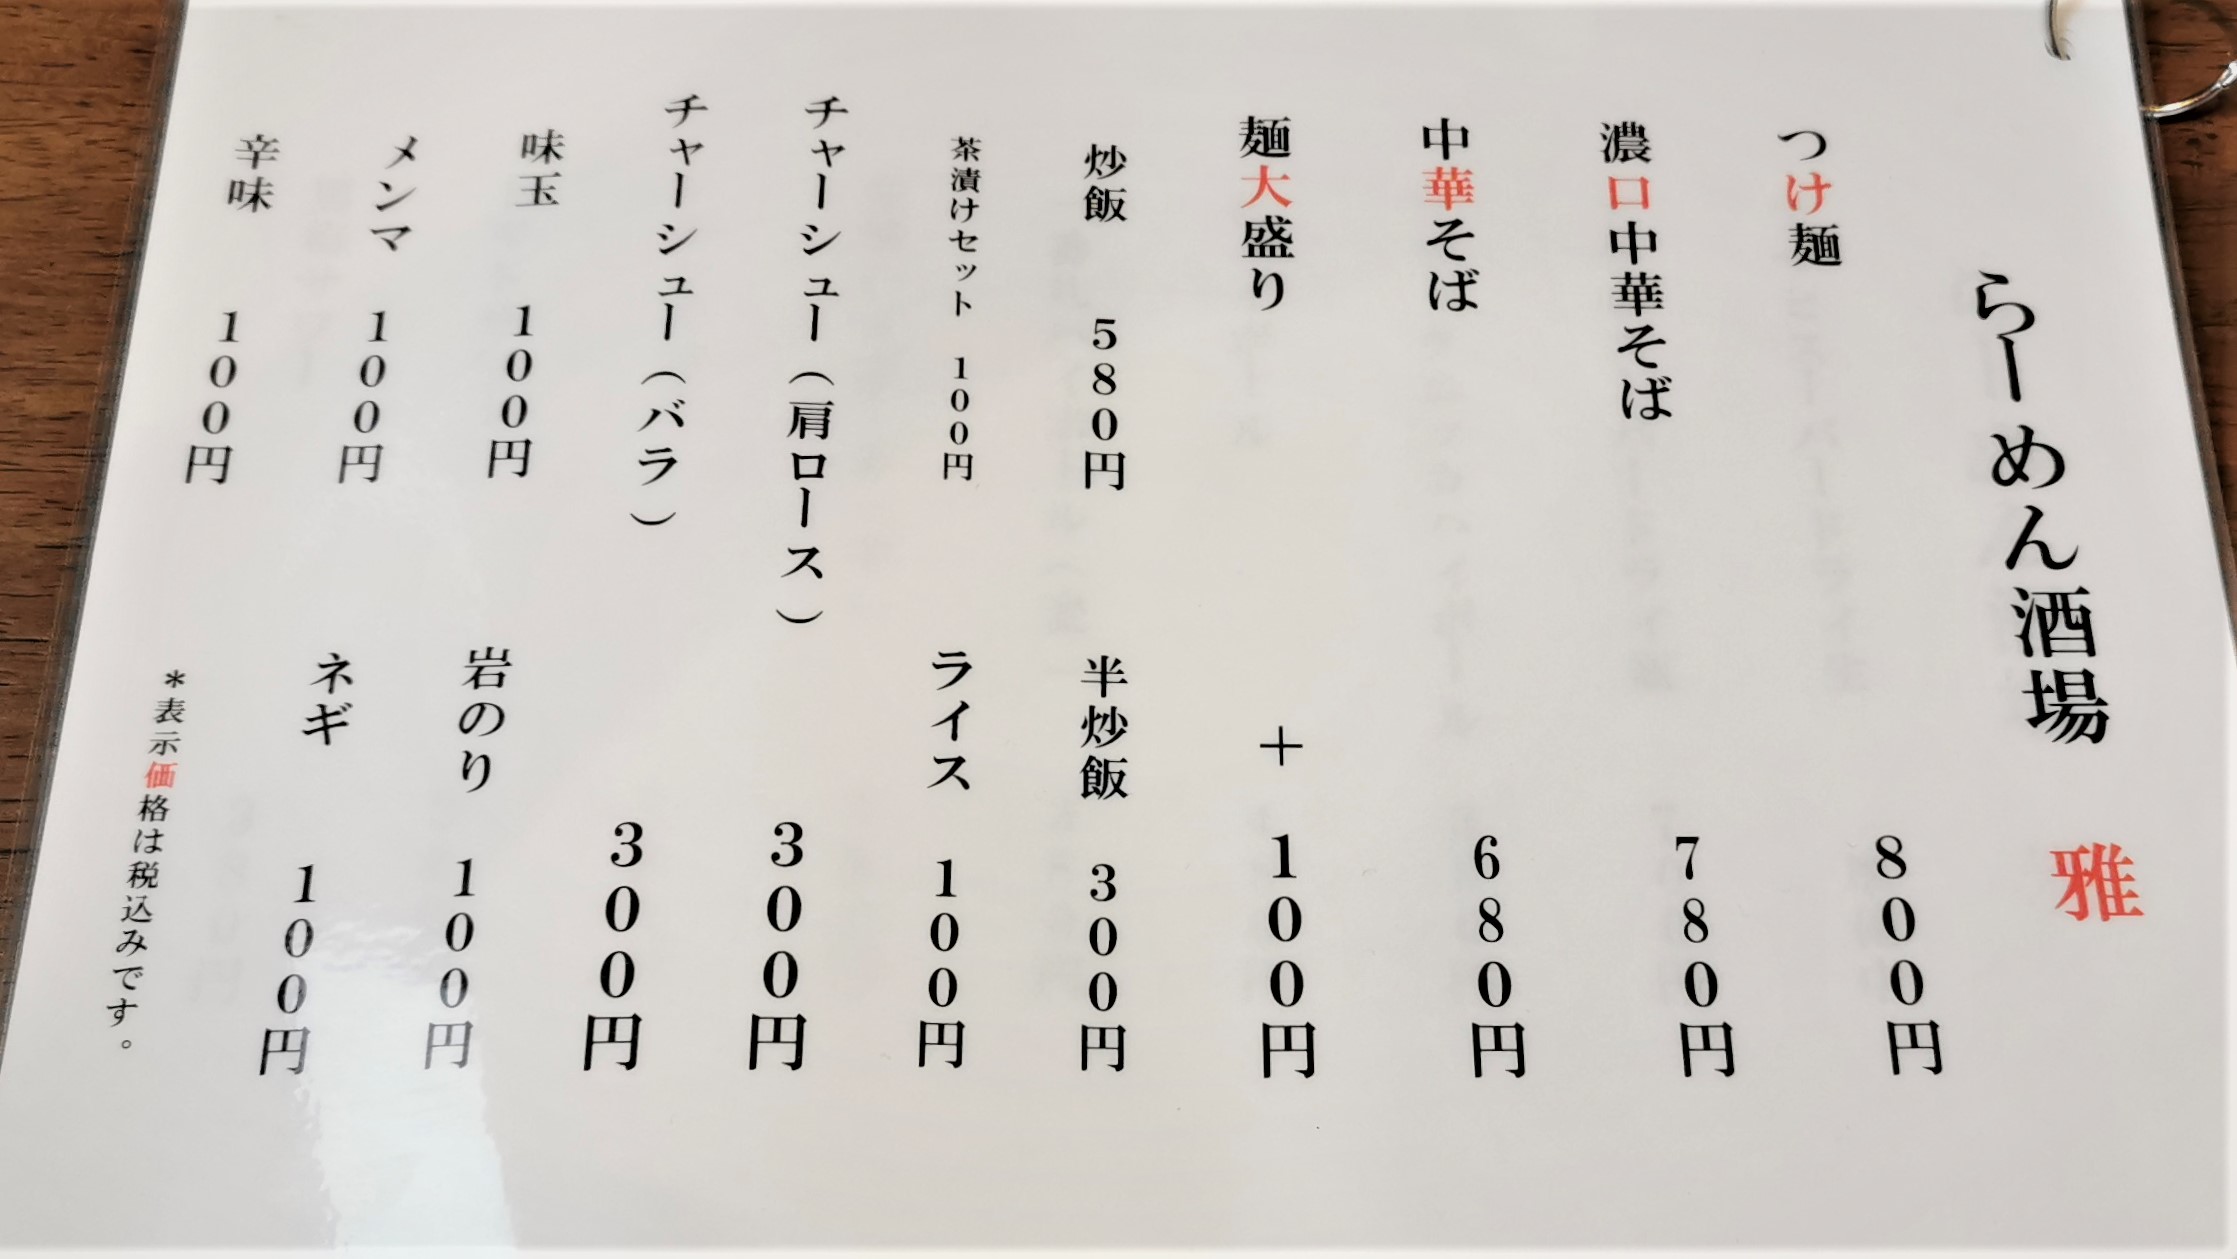 らーめん酒場 雅
つけ麺 800円
濃口中華そば 780円
中華そば 680円
麺大盛り +100円
炒飯 580円 半炒飯 300円
茶漬けセット 100円 ライス 100円
チャーシュー(肩ロース) 300円
チャーシュー(バラ) 300円
味玉 100円 岩のり 100円
メンマ 100円 ネギ 100円
辛味 100円
*表示価格は税込みです。